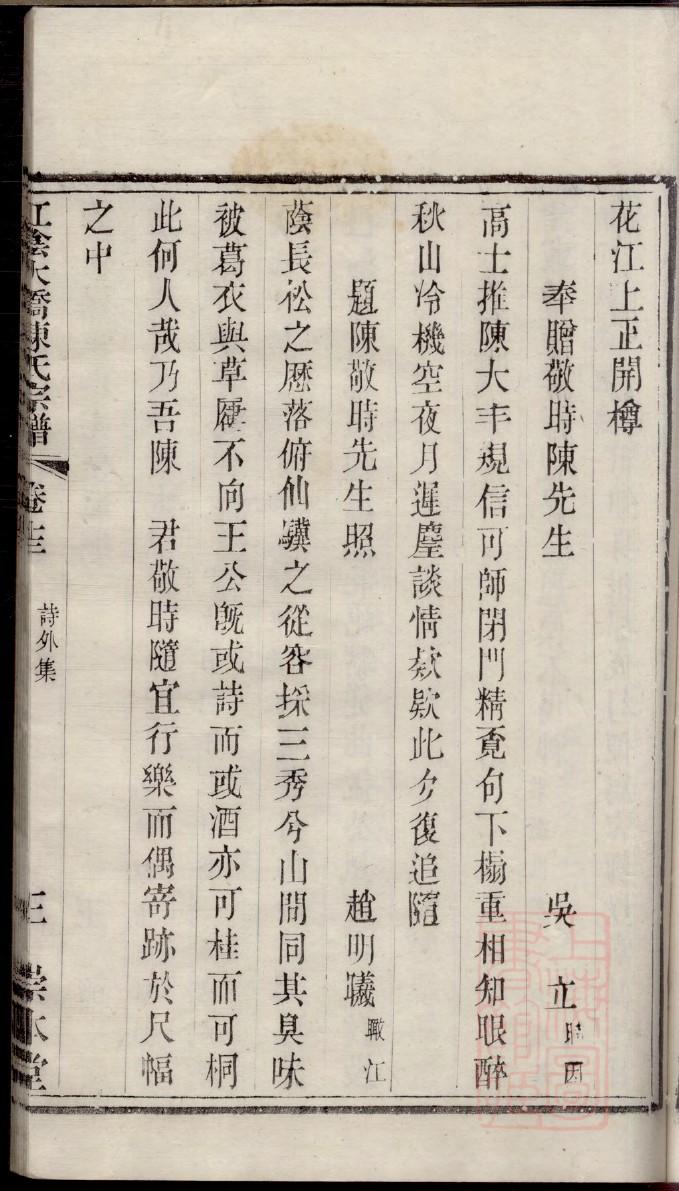 花江上正開樽
奉贈敬時陳先生　吳立時因
高士推陳大丰規信可師閉門精覔句下榻重相知眼醉
秋山冷機空夜月遲麈談情欵欵此夕復追隨
題陳敬時先生照　趙明曦瞰江
蔭長松之厯落俯仙驥之從容採三秀兮山間同其臭味
被葛衣與草屨不向王公旣或詩而或酒亦可桂而可桐
此何人哉乃吾陳　君敬時隨宜行樂而偶寄跡於尺幅
之中
江陰大橋陳氏宗譜　卷　詩外集　三　崇本堂